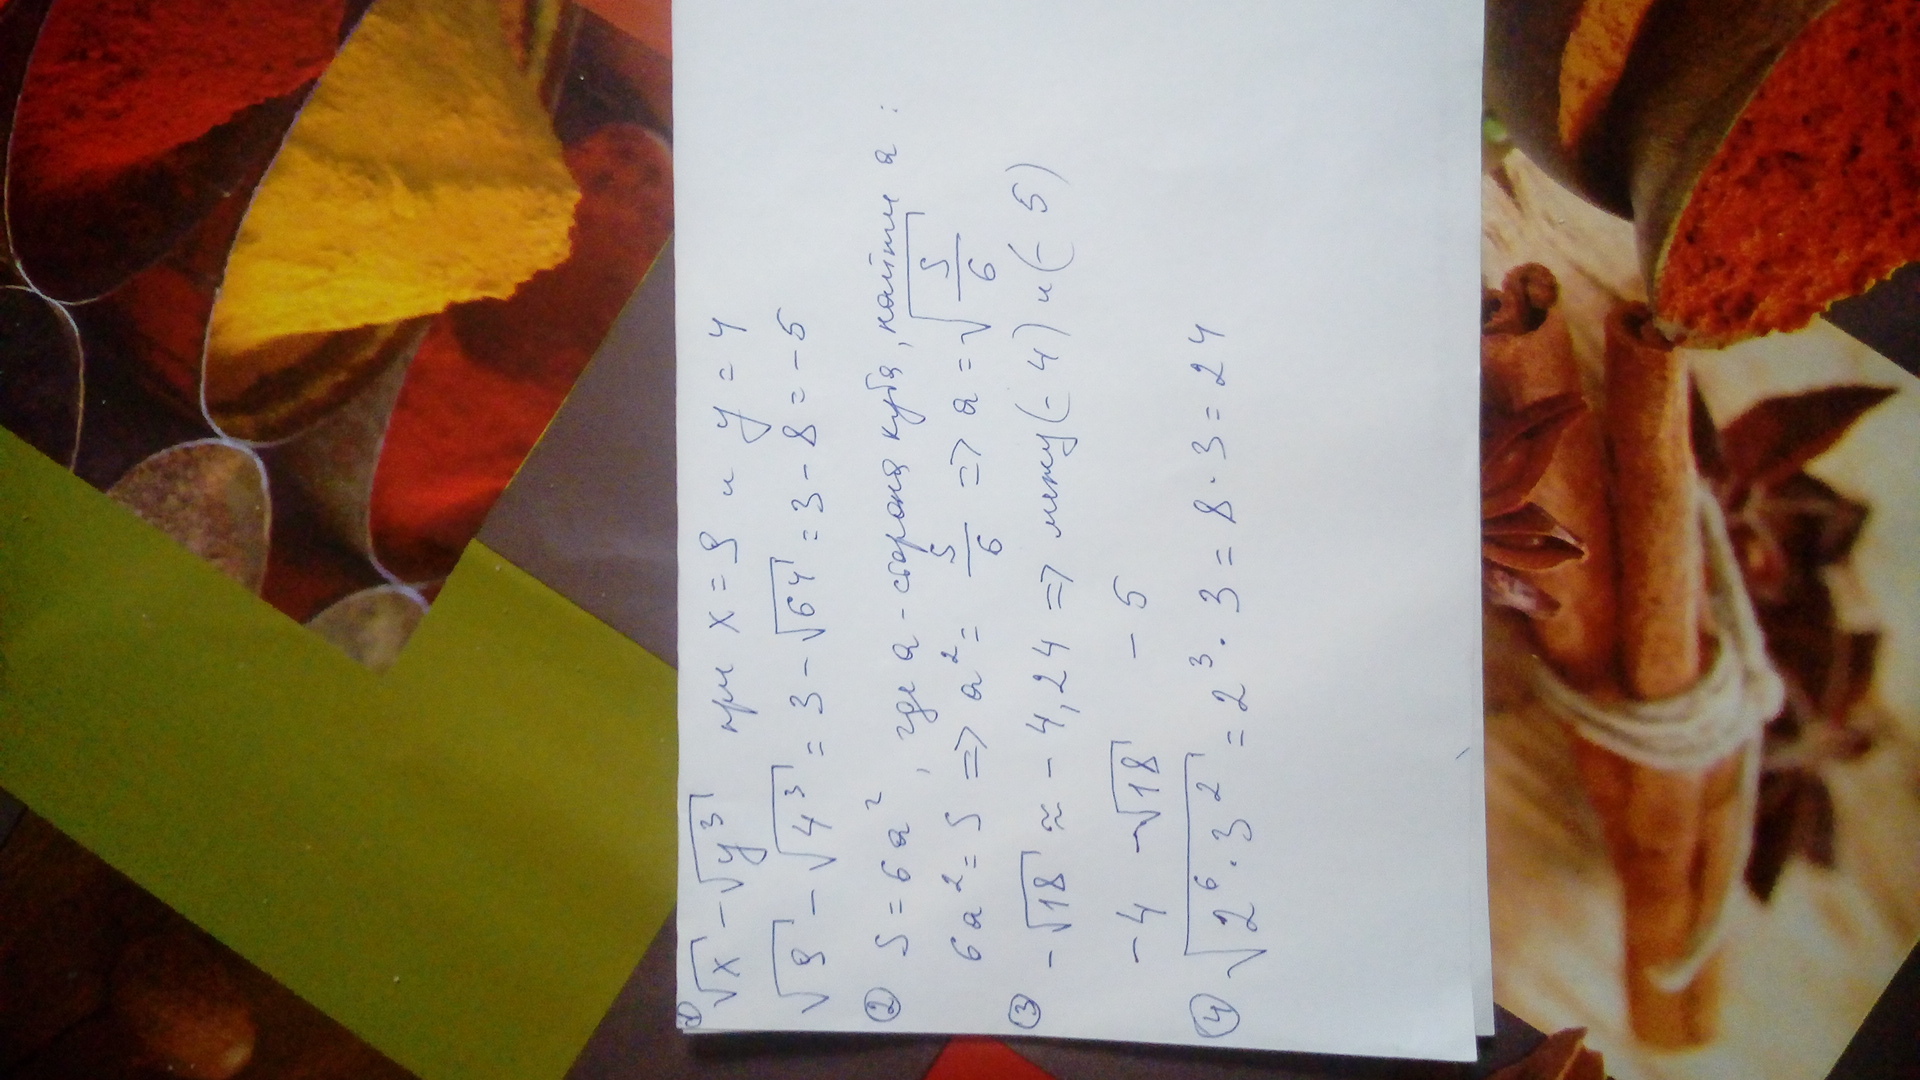 ① √x - √y³ при x = 9 и y = 4
√9 - √4³ = 3 - √64 = 3 - 8 = -5
② S = 6a², где a - сторона куба, найти a:
6a² = S => a² = S/6 => a = √(S/6)
③ -√18 ≈ -4,24 => между (-4) и (-5)
-4 -√18 -5
④ √(2⁶ · 3²) = 2³ · 3 = 8 · 3 = 24